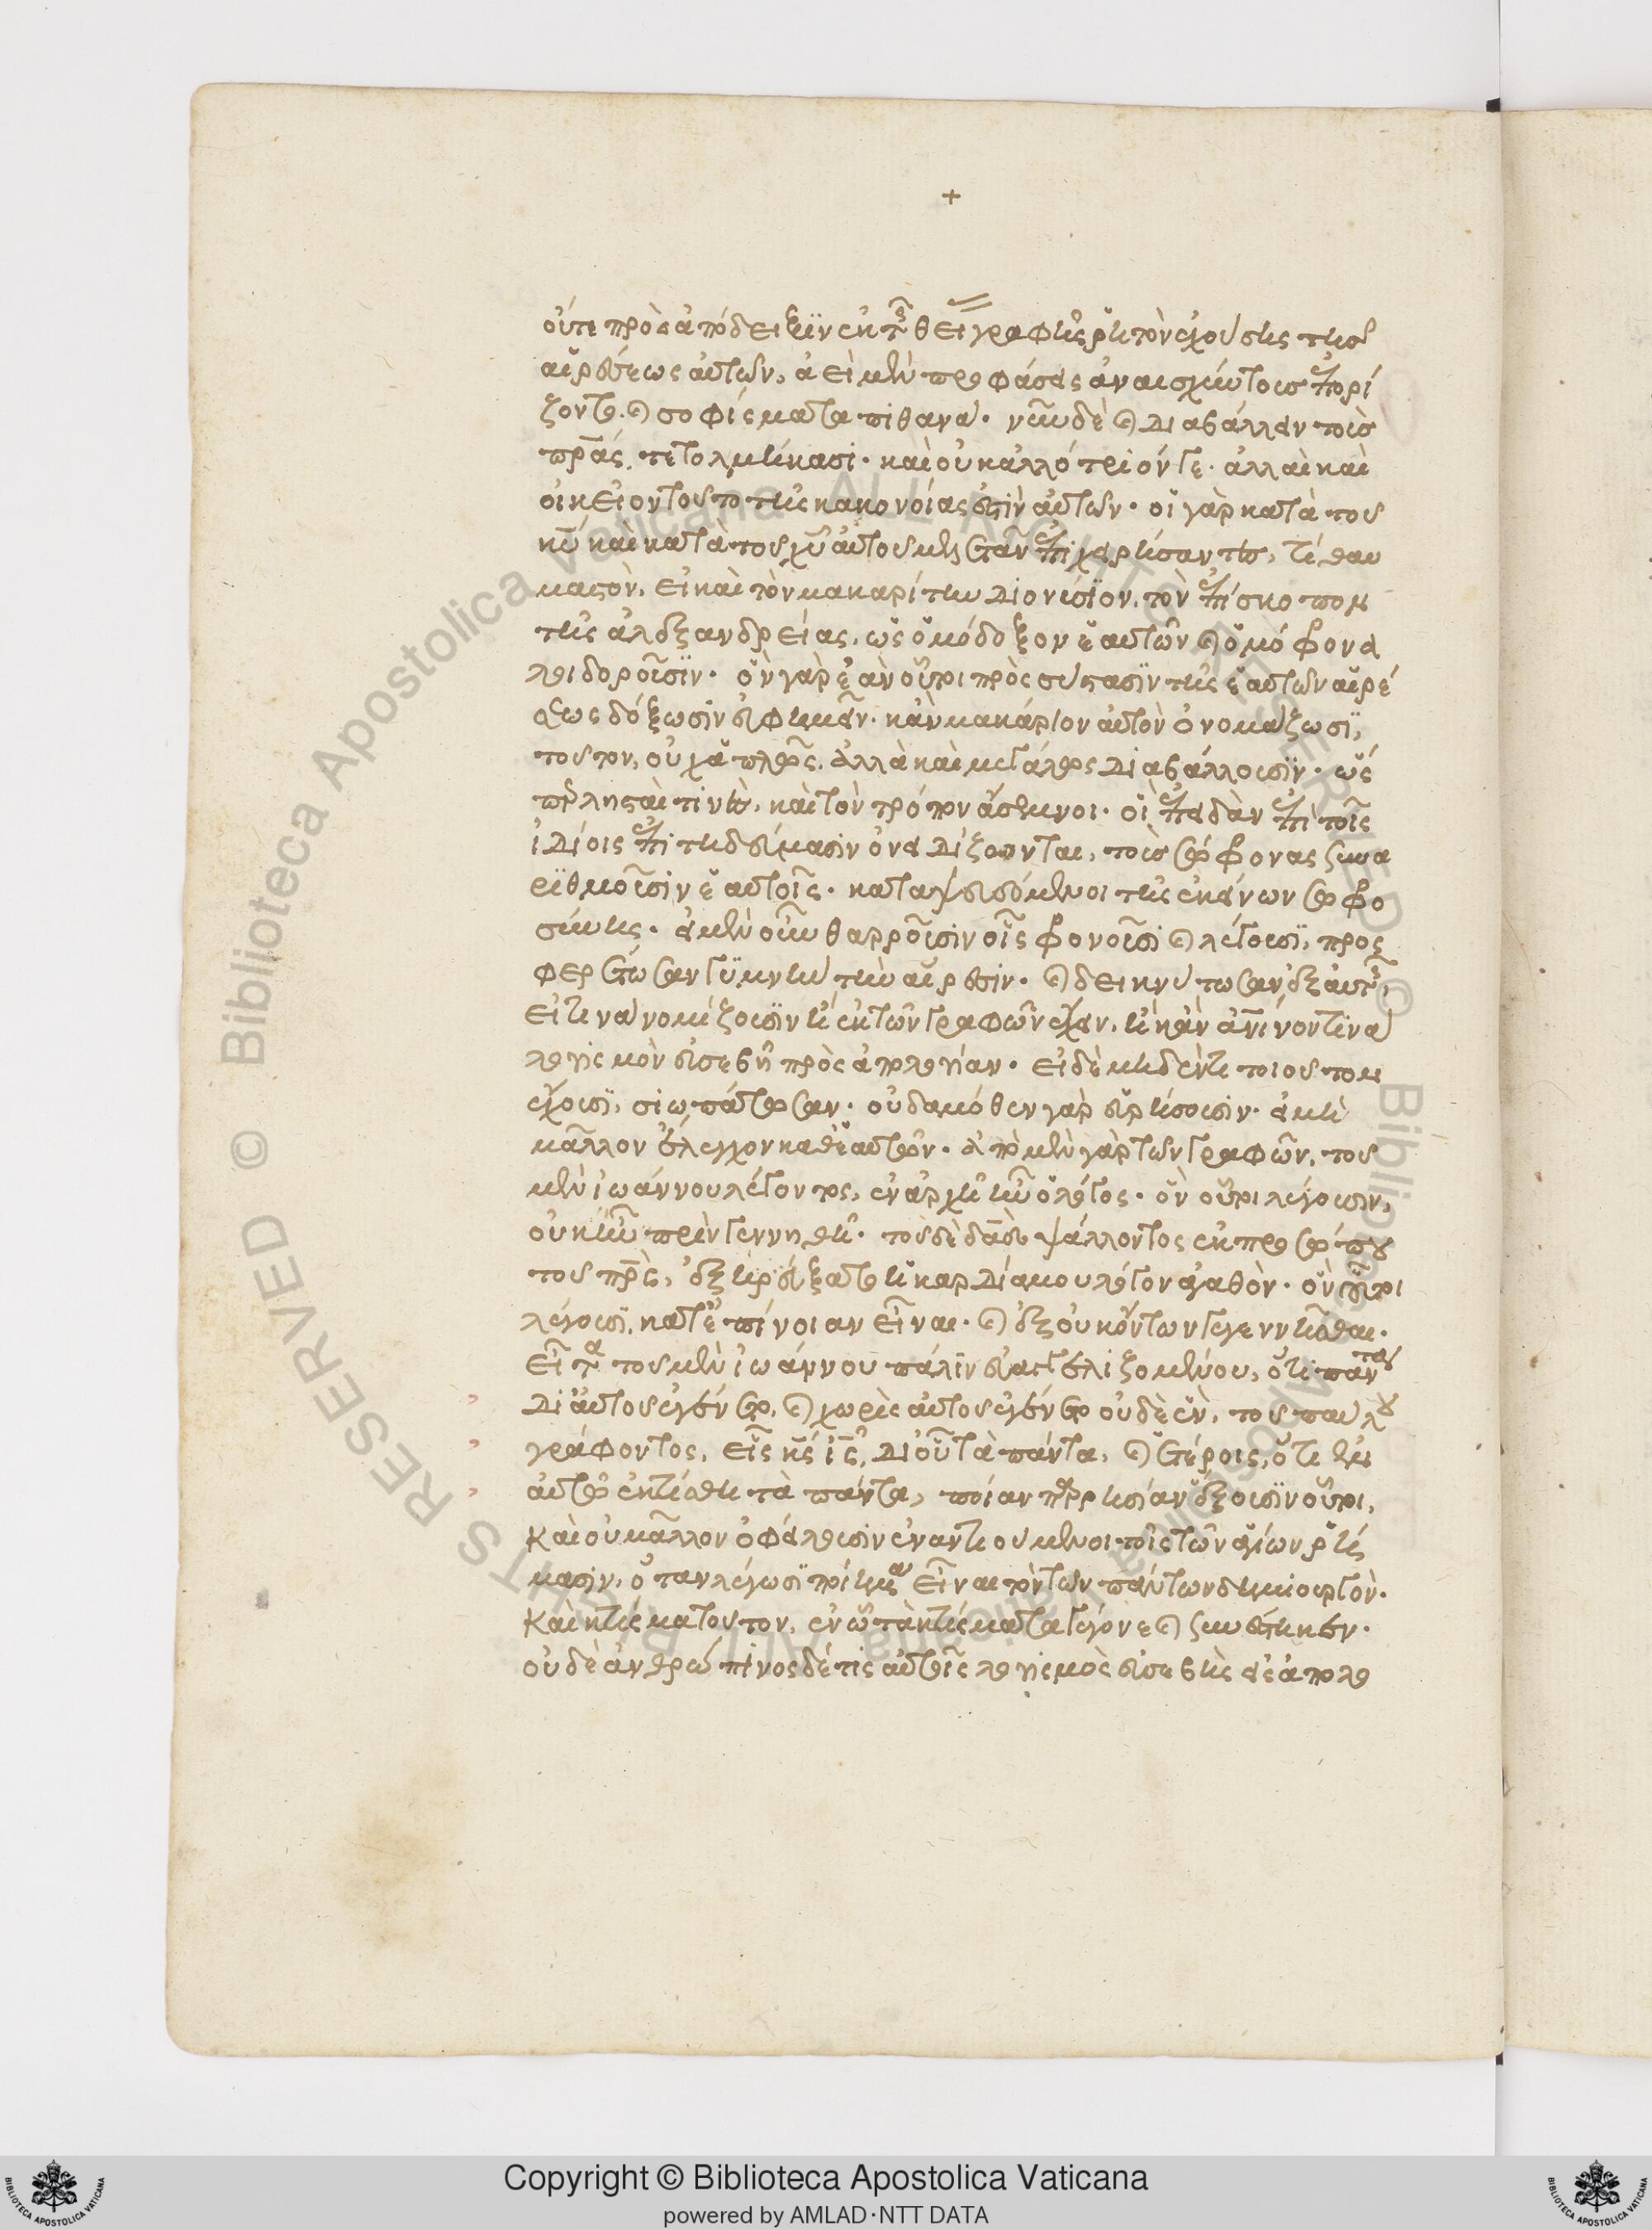 +
οὔτε πρὸς ἀπόδειξιν ἐκ τῆς θείας γραφῆς ῥητὸν ἐχούσης τῆς
αἱρέσεως αὐτῶν, ἀεὶ μὲν προφάσεις ἀναισχύντους ἐπορί
ζοντο. καὶ σοφίσματα πιθανά. νῦν δὲ καὶ διαβάλλειν τοὺς
πρας τετολμήκασι. καὶ οὐκ ἀλλότριόν γε. ἀλλὰ καὶ
οἰκεῖον τοῦτο τῆς κακονοίας ἐστὶν αὐτῶν. οἱ γὰρ κατὰ τοῦ
κυ καὶ κατὰ τοῦ χυ αὐτοῦ μελετᾶν ἐπιχειρήσαντες, τί θαυ
μαστὸν, εἰ καὶ τὸν μακαρίτην Διονύσιον, τὸν ἐπίσκοπον
τῆς ἀλεξανδρείας, ὡς ὁμόδοξον ἑαυτῶν καὶ ὁμόφρονα
λοιδοροῦσιν. ὃν γὰρ ἐὰν οὗτοι πρὸς σύστασιν τῆς ἑαυτῶν αἱρέ
σεως δόξωσιν εὐφημεῖν. κἂν μακάριον αὐτὸν ὀνομάζωσι,
τοῦτον, οὐχ ἁπλῶς, ἀλλὰ καὶ μεγάλως διαβάλλουσιν. ὡς
λησταί τινες, καὶ τὸν τρόπον ἄσεμνοι. οἳ ἐπειδὰν ἐπὶ τοῖς
ἰδίοις ἐπιτηδεύμασιν ὀνειδίζονται, τοὺς σώφρονας συνα
ριθμοῦσιν ἑαυτοῖς. καταψευδόμενοι τῆς ἐκείνων σωφρο
σύνης. εἰ μὲν οὖν θαρροῦσιν οἷς φρονοῦσι καὶ λέγουσι, προς
φερέτωσαν γυμνὴν τὴν αἵρεσιν. καὶ δεικνύτωσαν ἐξ αὐτῆς,
εἴ τινα νομίζουσιν ἢ ἐκ τῶν γραφῶν ἔχειν, ἢ κἂν ἀνθρώπινόν τινα
λογισμὸν εὐσεβῆ πρὸς ἀπολογίαν. εἰ δὲ μηδέν τι τοιοῦτον
ἔχουσι, σιωπάτωσαν. οὐδαμόθεν γὰρ εὑρήσουσιν. εἰ μὴ
μᾶλλον ἔλεγχον καθ' ἑαυτῶν. ἀπὸ μὲν γὰρ τῶν γραφῶν, τοῦ
μὲν ἰωάννου λέγοντος, ἐν ἀρχῇ ἦν ὁ λόγος. ὃν οὗτοι λέγουσιν,
οὐκ ἦν πρὶν γεννηθῇ. τοῦ δὲ δαδ ψάλλοντος ἐκ προσώπου
τοῦ πρς, ἐξηρεύξατο ἡ καρδία μου λόγον ἀγαθὸν. ὃν οὗτοι
λέγουσι, κατ' ἐπίνοιαν εἶναι. καὶ ἐξ οὐκ ὄντων γεγεννῆσθαι.
εἶτα τοῦ μὲν ἰωάννου πάλιν εὐαγγελιζομένου, ὅτι πάντα
δι' αὐτοῦ ἐγένετο, καὶ χωρὶς αὐτοῦ ἐγένετο οὐδὲ ἓν, τοῦ παύλου
γράφοντος, εἷς κς ις, δι' οὗ τὰ πάντα, καὶ ἑτέροις, ὅτι ἐν
αὐτῷ ἐκτίσθη τὰ πάντα, ποίαν παρρησίαν ἕξουσιν οὗτοι,
καὶ οὐ μᾶλλον ὀφείλουσιν ἐναντιούμενοι τοῖς τῶν ἁγίων ῥή
μασιν, ὅταν λέγωσι ποίημα εἶναι τὸν τῶν πάντων δημιουργὸν.
καὶ κτίσμα τοῦτον, ἐν ᾧ τὰ κτίσματα γέγονε καὶ συνέστηκεν.
οὐδὲ ἀνθρώπινος δέ τις αὐτοῖς λογισμὸς εὐσεβὴς εἰς ἀπολο
Copyright © Biblioteca Apostolica Vaticana
powered by AMLAD·NTT DATA